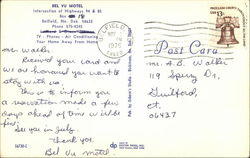 BEL VU MOTEL
Intersection of Highways 94 & 85
Box 18
Belfield, No. Dak 58622
Phone 575-4245
TV - Phones - Air Conditioning
A Home Away From Home
BELFIELD
1976
Post Card
13c
Mr. Walker
Received your card and
we are honored you want to
stay with us.
This is to inform you
a reservation made a few
days ahead of time will be
fine.
See you in July.
Thank you
Bel Vu Motel
Mr. A. B. Walker
119 Sperry Dr.
Guilford,
Ct.
06437